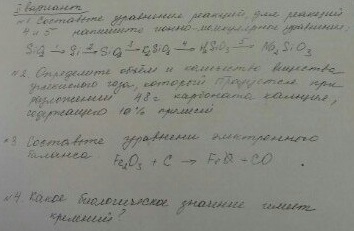 I вариант
№1. Составьте уравнение реакций, для реакций
4 и 5 напишите ионно-молекулярное уравнение:
SiO2 → Si → SiO2 → → H2SiO3 → Na2SiO3
№2. Определите объём и количество вещества
углекислого газа, который при
разложении 48 г карбоната кальция,
содержащего 10% примесей
№3 Составьте уравнение электронного
баланса
Fe2O3 + C → FeO + CO
№4. Какое биологическое значение имеет
кремний?